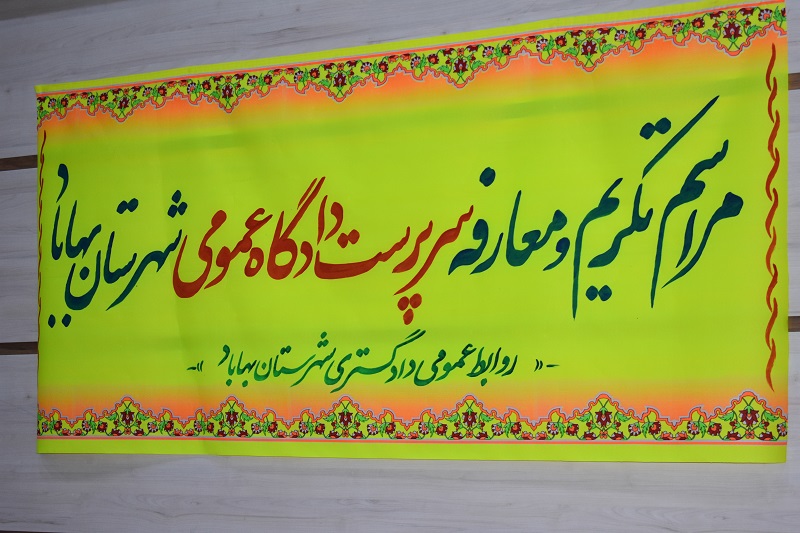 مراسم تکریم و معارفه سرپرست دادگاه عمومی شهرستان بهاباد
-« روابط عمومی دادگستری شهرستان بهاباد »-